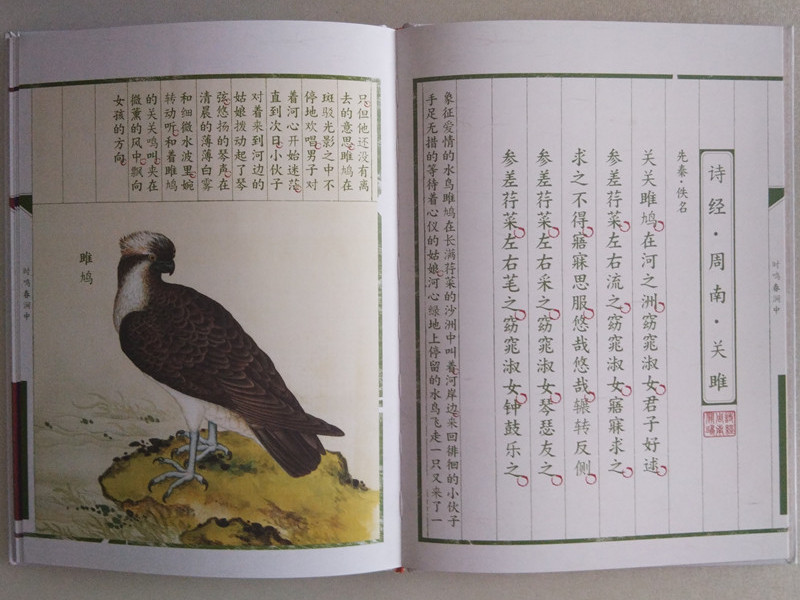 时鸣春涧中
诗经·周南·关雎
先秦·佚名
关关雎鸠。在河之洲。窈窕淑女。君子好逑。
参差荇菜。左右流之。窈窕淑女。寤寐求之。
求之不得。寤寐思服。悠哉悠哉。辗转反侧。
参差荇菜。左右采之。窈窕淑女。琴瑟友之。
参差荇菜。左右芼之。窈窕淑女。钟鼓乐之。
象征爱情的水鸟雎鸠在长满荇菜的沙洲中叫着。河岸边。来回徘徊的小伙子
手足无措的等待着心仪的姑娘。河心绿地上停留的水鸟飞走一只又来了一
只。但他还没有离
去的意思。雎鸠在
斑驳光影之中不
停地欢唱。男子对
着河心开始迷茫。
直到次日。小伙子
对着来到河边的
姑娘拨动起了琴
弦。悠扬的琴声。在
清晨的薄薄白雾
和细微水波里。婉
转动听。和着雎鸠
的关关鸣叫。夹在
微薰的风中。飘向
女孩的方向。
雎鸠
时鸣春涧中